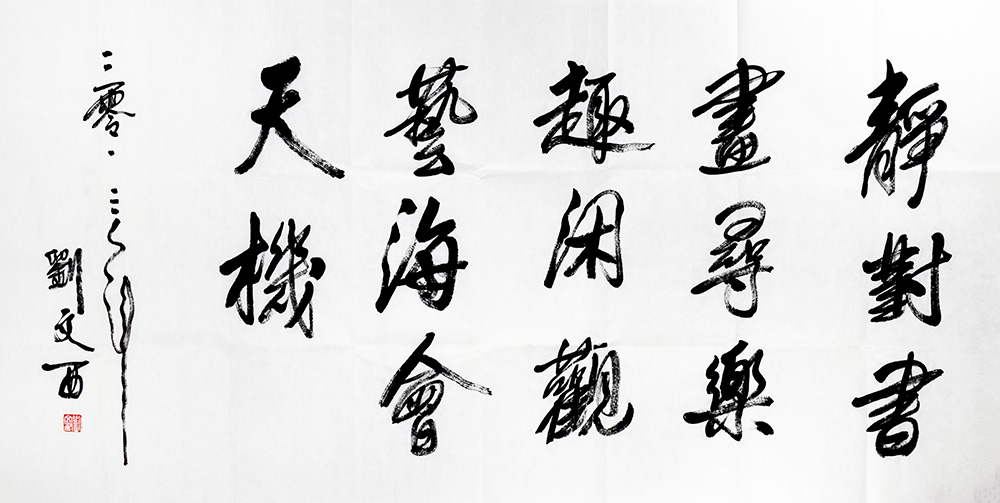 靜對書
畫尋樂
趣閑觀
藝海會
天機
二零一二年
劉文西